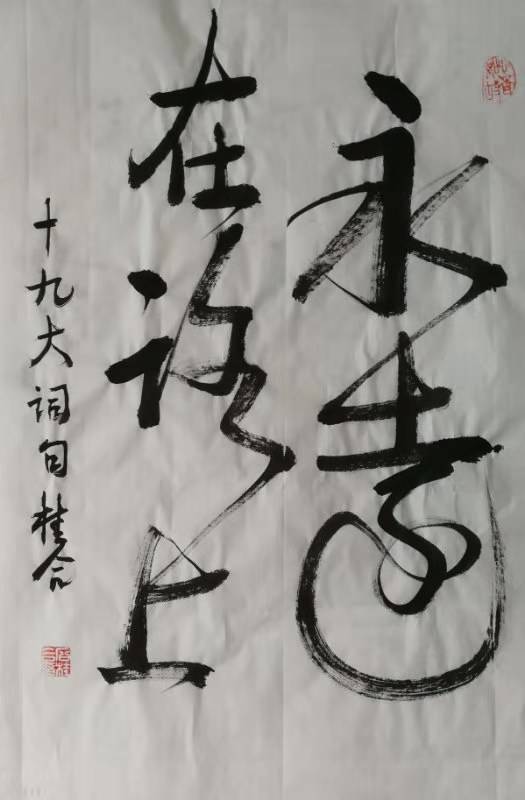 永遠
在路上
十九大词句 桂合